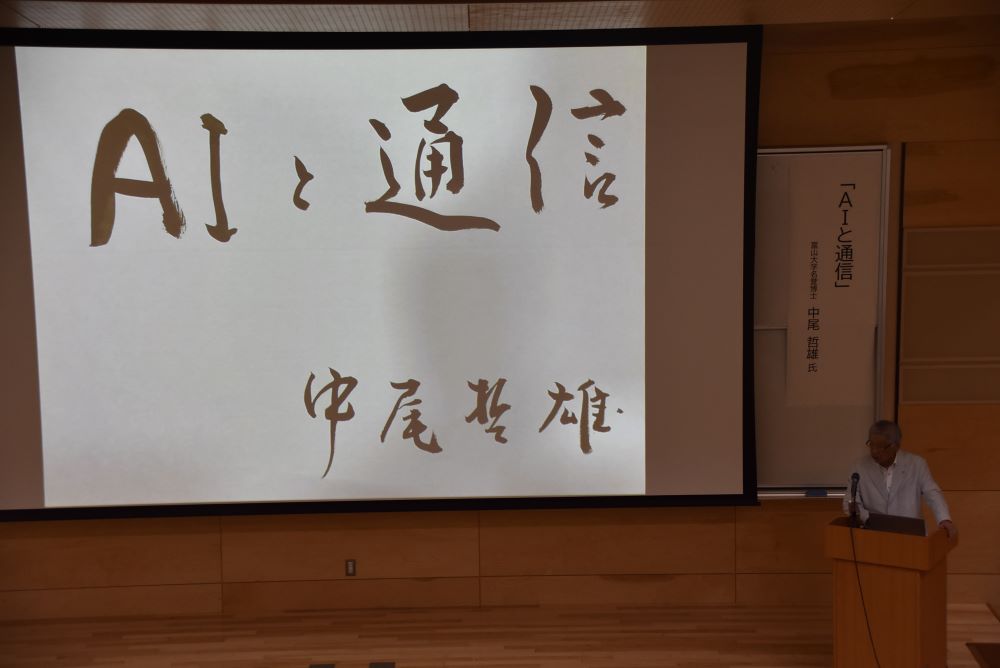 AIと通信
中尾哲雄
「AIと通信」
富山大学名誉博士 中尾 哲雄 氏